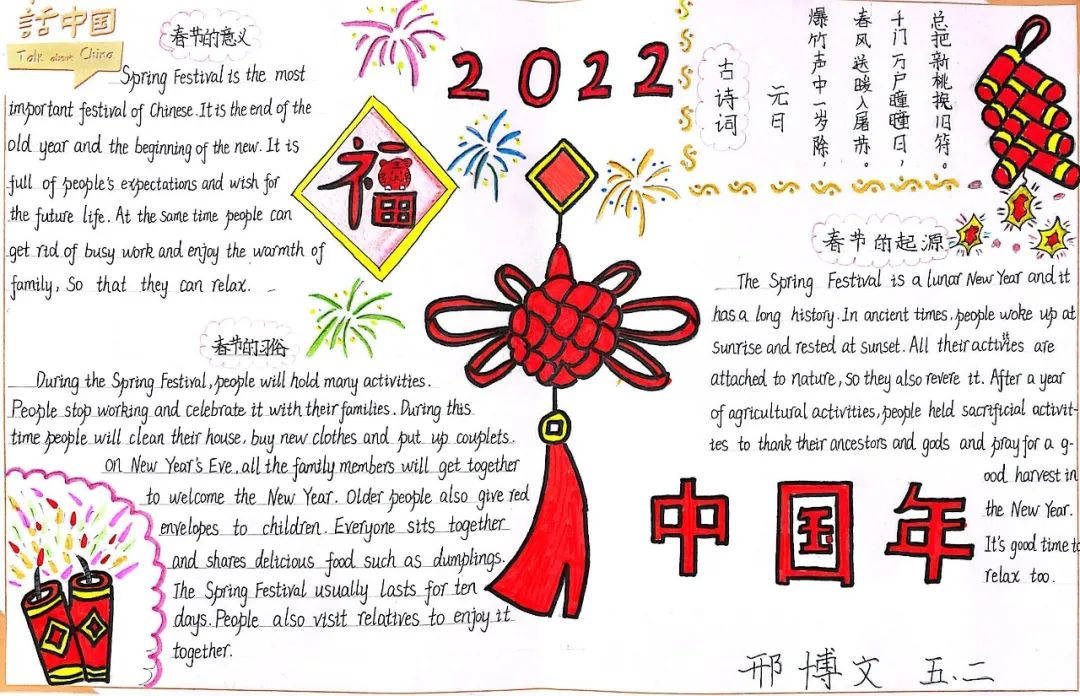 話中国
Talk about China
春节的意义
Spring Festival is the most
important festival of Chinese. It is the end of the
old year and the beginning of the new. It is
full of people's expectations and wish for
the future life. At the same time people can
get rid of busy work and enjoy the warmth of
family, So that they can relax.
福
2022
古诗词
元日
爆竹声中一岁除，
春风送暖入屠苏。
千门万户瞳瞳日，
总把新桃换旧符。
春节的习俗
During the Spring Festival, people will hold many activities.
People stop working and celebrate it with their families. During this
time people will clean their house, buy new clothes and put up couplets.
on New Year's Eve, all the family members will get together
to welcome the New Year. Older people also give red
envelopes to children. Everyone sits together
and shares delicious food such as dumplings.
The Spring Festival usually lasts for ten
days. People also visit relatives to enjoy it
together.
春节的起源
The Spring Festival is a lunar New Year and it
has a long history. In ancient times, people woke up at
sunrise and rested at sunset. All their activities are
attached to nature, so they also revere it. After a year
of agricultural activities, people held sacrificial activit-
ies to thank their ancestors and gods and pray for a g-
ood harvest in
the New Year.
It's good time to
relax too.
中国年
邢博文 五.二